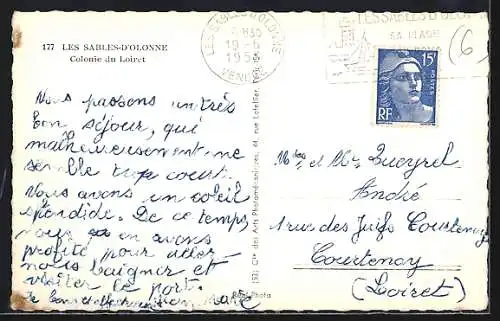 177 LES SABLES-D'OLONNE
Colonie du Loiret
LES SABLES D'OLONNE
19-6
VENDÉE
LES SABLES D'OLONNE
SA PLAGE
(6
15F
POSTES
RF
Nous passons un très
bon séjour, qui
malheureusement ne
semble trop court.
Nous avons un soleil
splendide. De ce temps,
nous en avons
profité pour aller
nous baigner et
visiter le port.
Mr et Mme Queyrel
André
1 rue des Juifs Courtenay
Courtenay
(Loiret)
Cie des Arts Photomécaniques, 44, rue Letellier
Photo